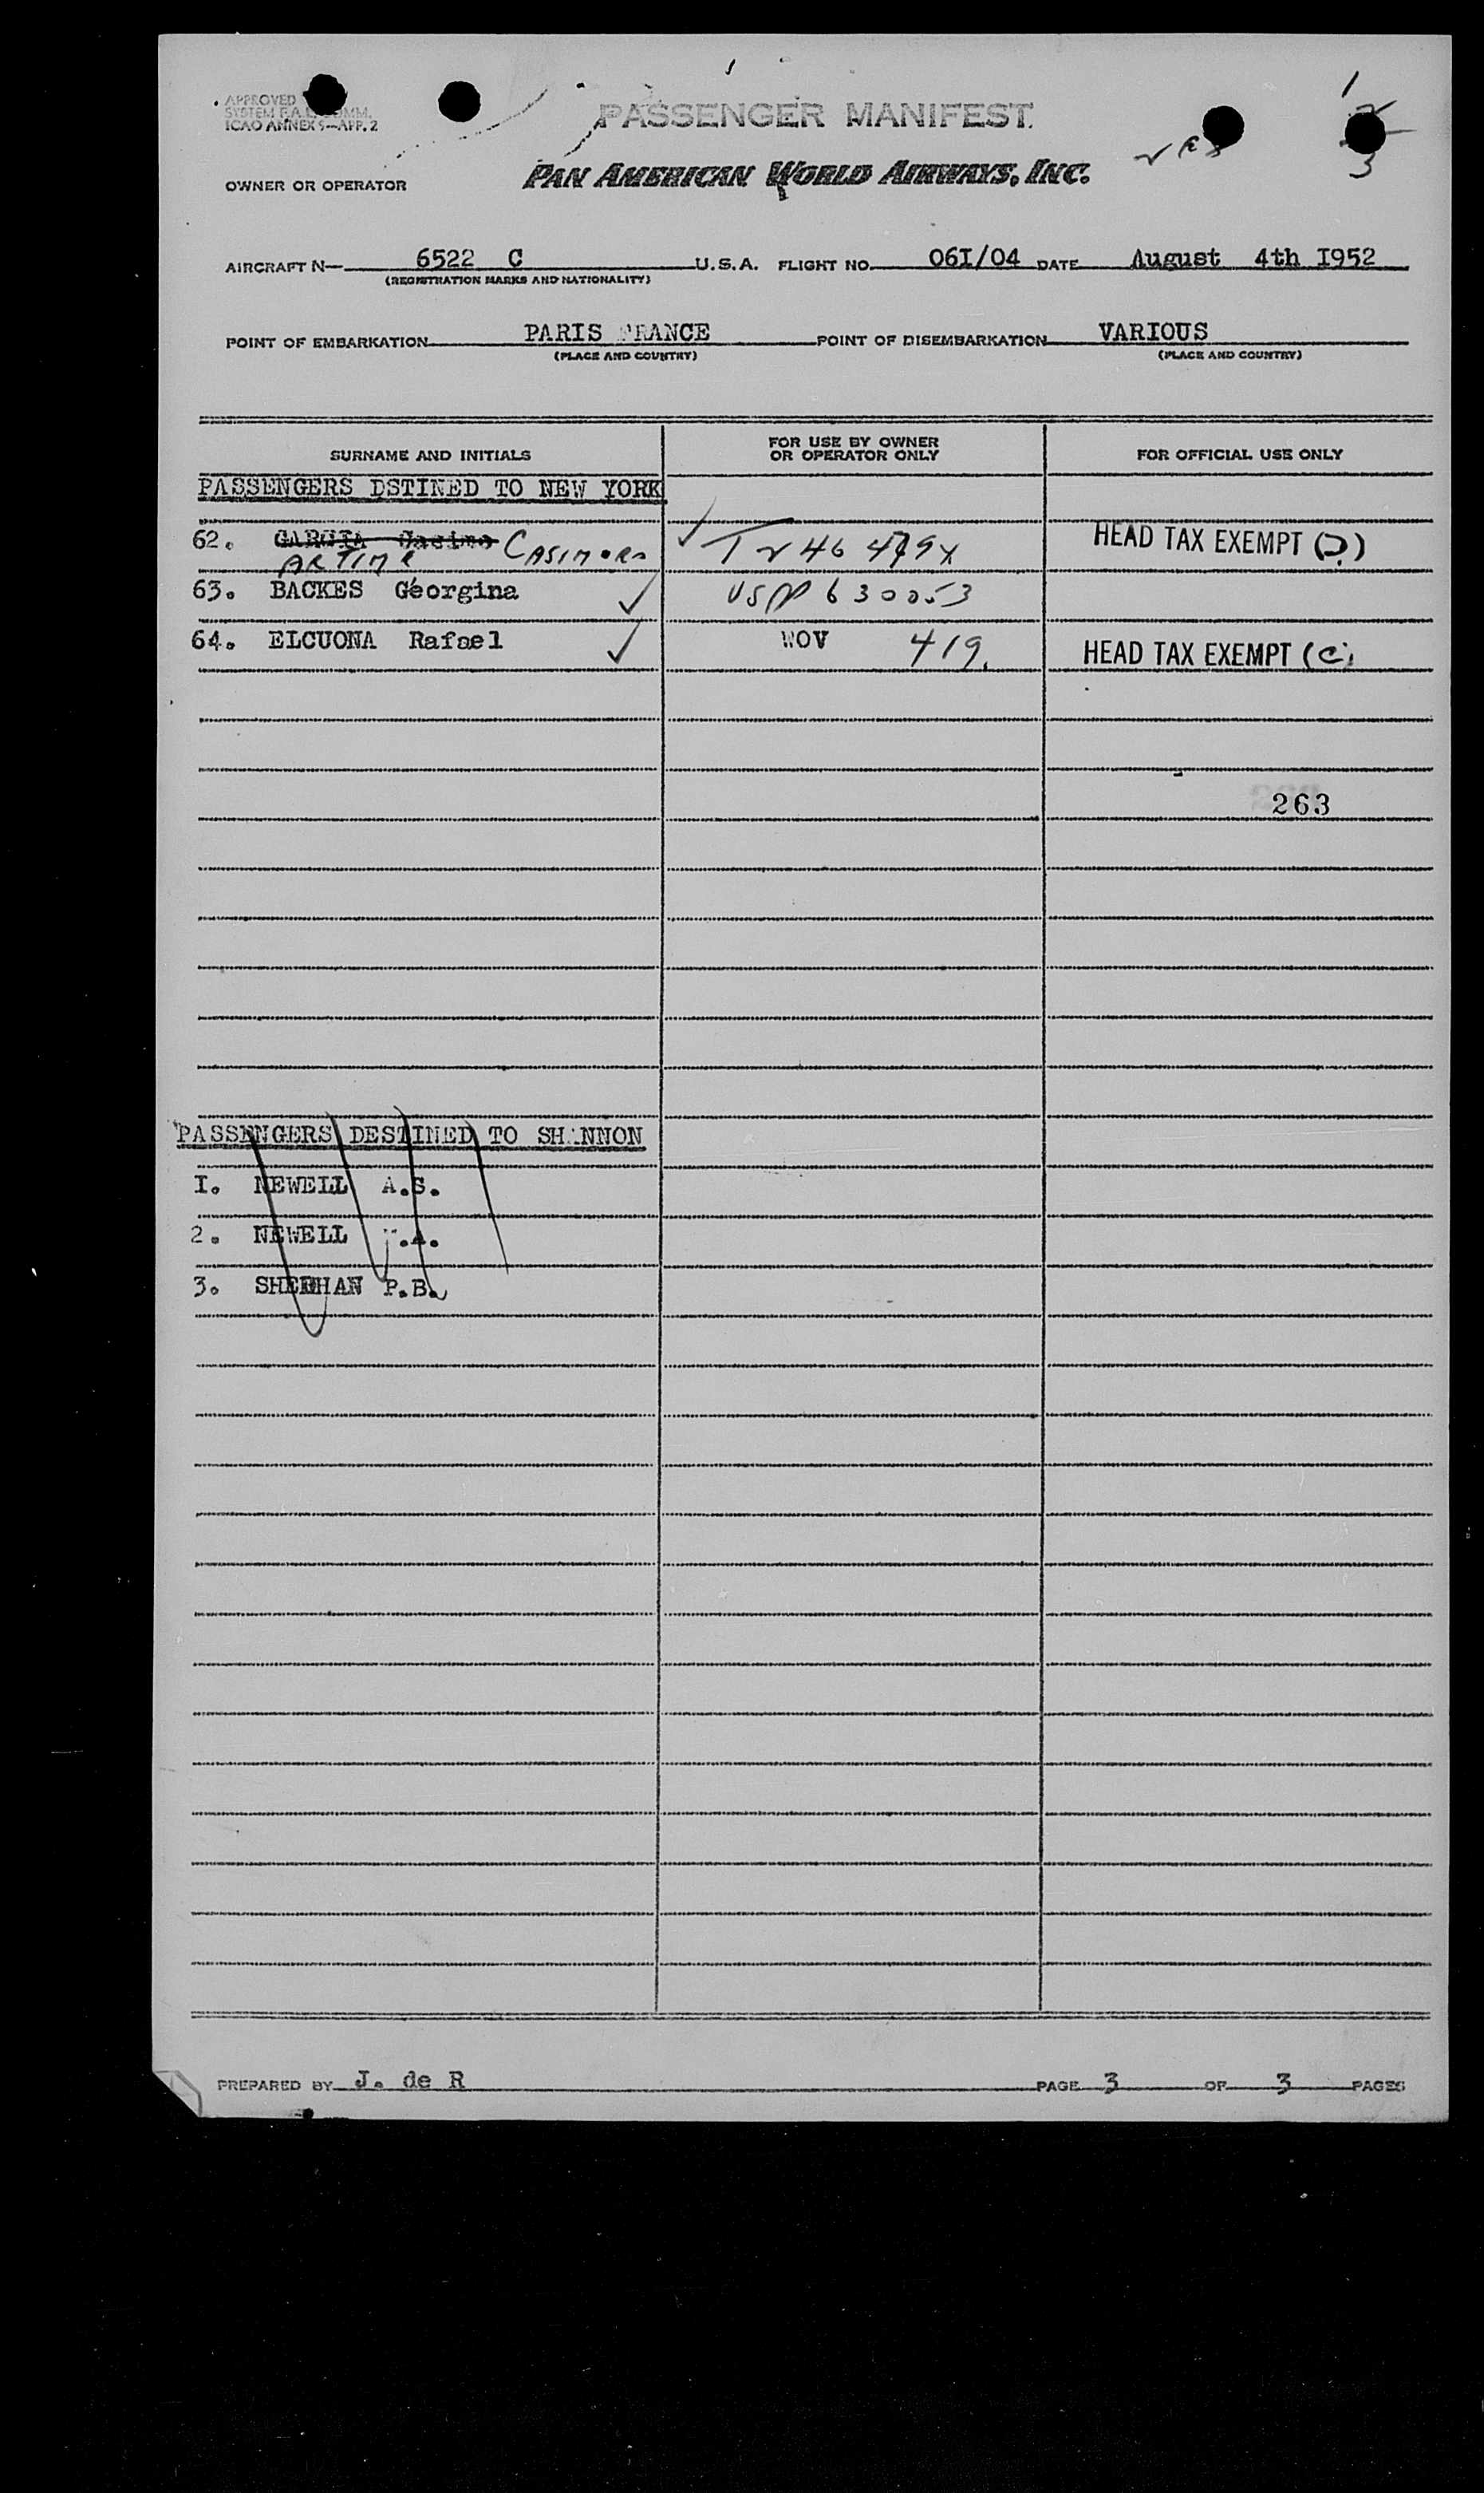 APPROVED
SYSTEM F.A.L. COMM.
ICAO ANNEX 9—APP. 2
PASSENGER MANIFEST
OWNER OR OPERATOR PAN AMERICAN WORLD AIRWAYS, INC.
AIRCRAFT N— 6522 C U.S.A. FLIGHT NO. 06I/04 DATE August 4th I952
(REGISTRATION MARKS AND NATIONALITY)
POINT OF EMBARKATION PARIS FRANCE POINT OF DISEMBARKATION VARIOUS
(PLACE AND COUNTRY) (PLACE AND COUNTRY)
SURNAME AND INITIALS FOR USE BY OWNER OR OPERATOR ONLY FOR OFFICIAL USE ONLY
PASSENGERS DSTINED TO NEW YORK
62. GARCIA Casimo CASIMORO HEAD TAX EXEMPT
ARTIME
63. BACKES Géorgina USPP 630053
64. ELCUONA Rafael WOV 419. HEAD TAX EXEMPT (C)
263
PASSENGERS DESTINED TO SHANNON
I. NEWELL A.S.
2. NEWELL .A.
3. SHEEHAN P.B.
PREPARED BY J. de R PAGE 3 OF 3 PAGES